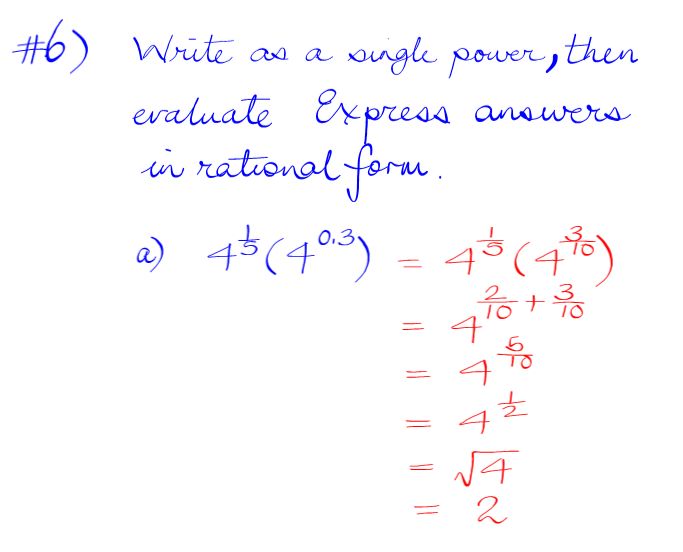 #6) Write as a single power, then
evaluate Express answers
in rational form.
a) 4^(1/5) (4^0.3) = 4^(1/5) (4^(3/10))
= 4^(2/10 + 3/10)
= 4^(5/10)
= 4^(1/2)
= √4
= 2